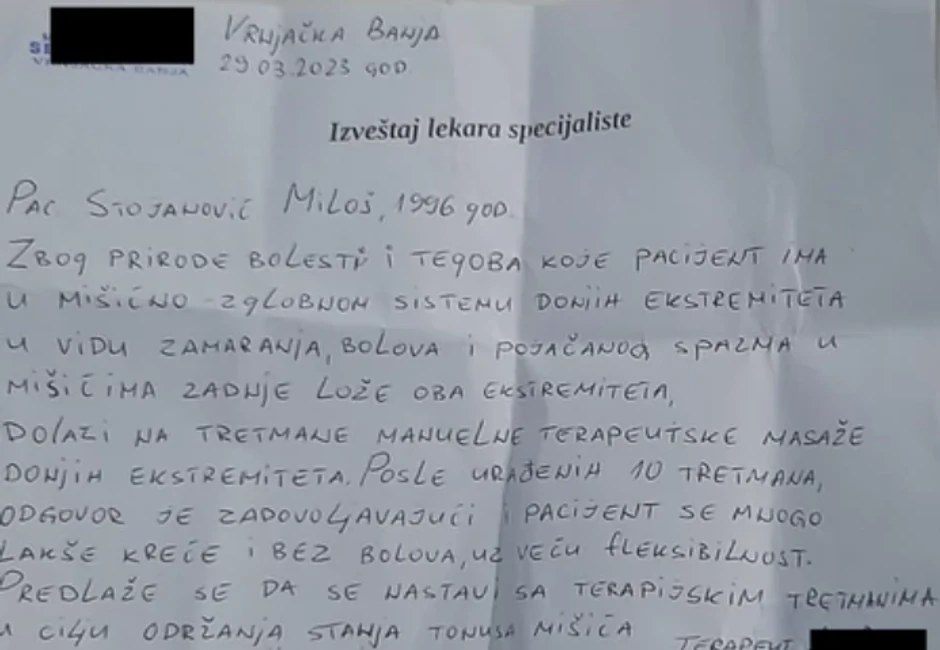 Vrnjačka Banja
29.03.2023 god.
VRNJAČKA BANJA
Izveštaj lekara specijaliste
Pac Stojanović Miloš, 1996 god.
Zbog prirode bolesti i tegoba koje pacijent ima
u mišićno-zglobnom sistemu donjih ekstremiteta
u vidu zamaranja, bolova i pojačanog spazma u
mišićima zadnje lože oba ekstremiteta,
dolazi na tretmane manuelne terapeutske masaže
donjih ekstremiteta. Posle urađenih 10 tretmana,
odgovor je zadovoljavajući i pacijent se mnogo
lakše kreće i bez bolova, uz veću fleksibilnost.
Predlaže se da se nastavi sa terapijskim tretmanima
u cilju održanja stanja tonusa mišića
Terapeut